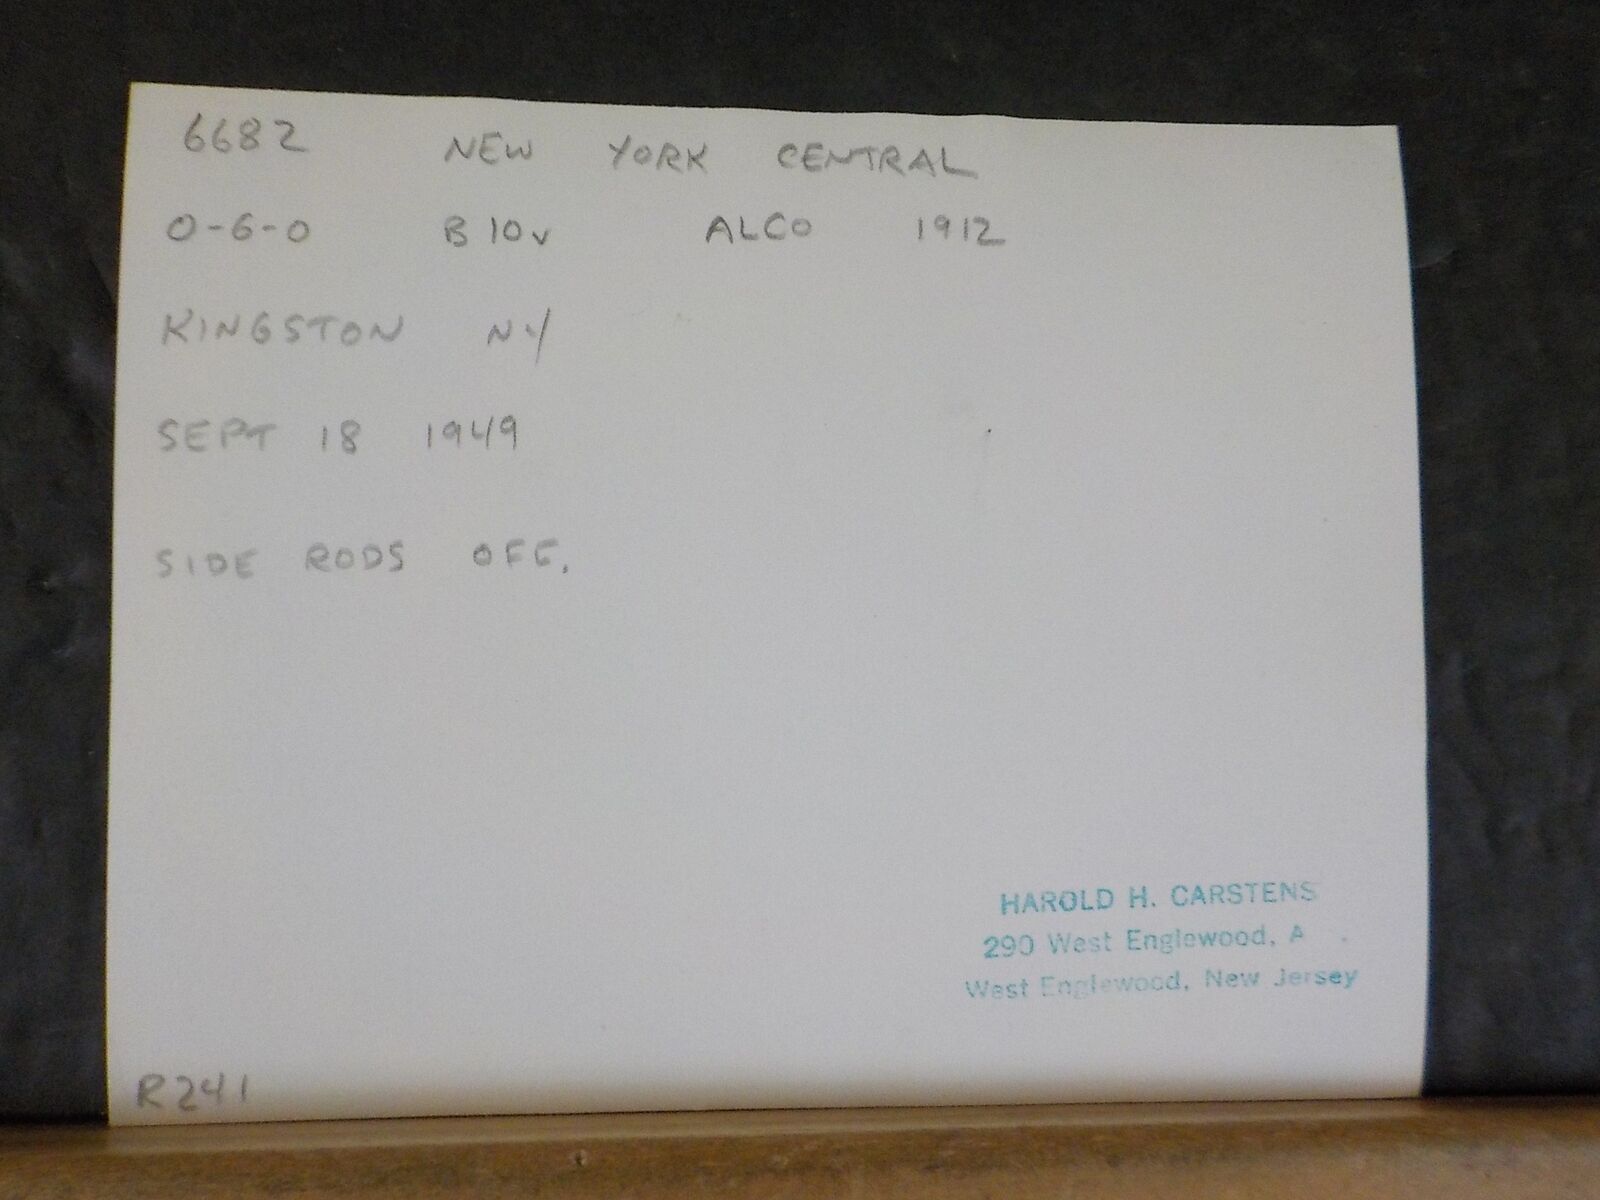 6682 NEW YORK CENTRAL
0-6-0 B10v ALCO 1912
KINGSTON NY
SEPT 18 1949
SIDE RODS OFF.
HAROLD H. CARSTENS
290 West Englewood, A
West Englewood, New Jersey
R241